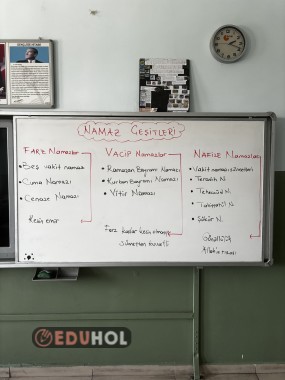 NAMAZ ÇEŞİTLERİ
FARZ Namazlar
• Beş vakit namaz
• Cuma Namazı
• Cenaze Namazı
Kesin emir
VACİP Namazlar
• Ramazan Bayramı Namazı
• Kurban Bayramı Namazı
• Vitir Namazı
Farz kadar kesin olmayan
NAFİLE Namazlar
• Vakit namazı sünnetleri
• Teravih N.
• Teheccüd N.
• Şükür N.
EDUHOL